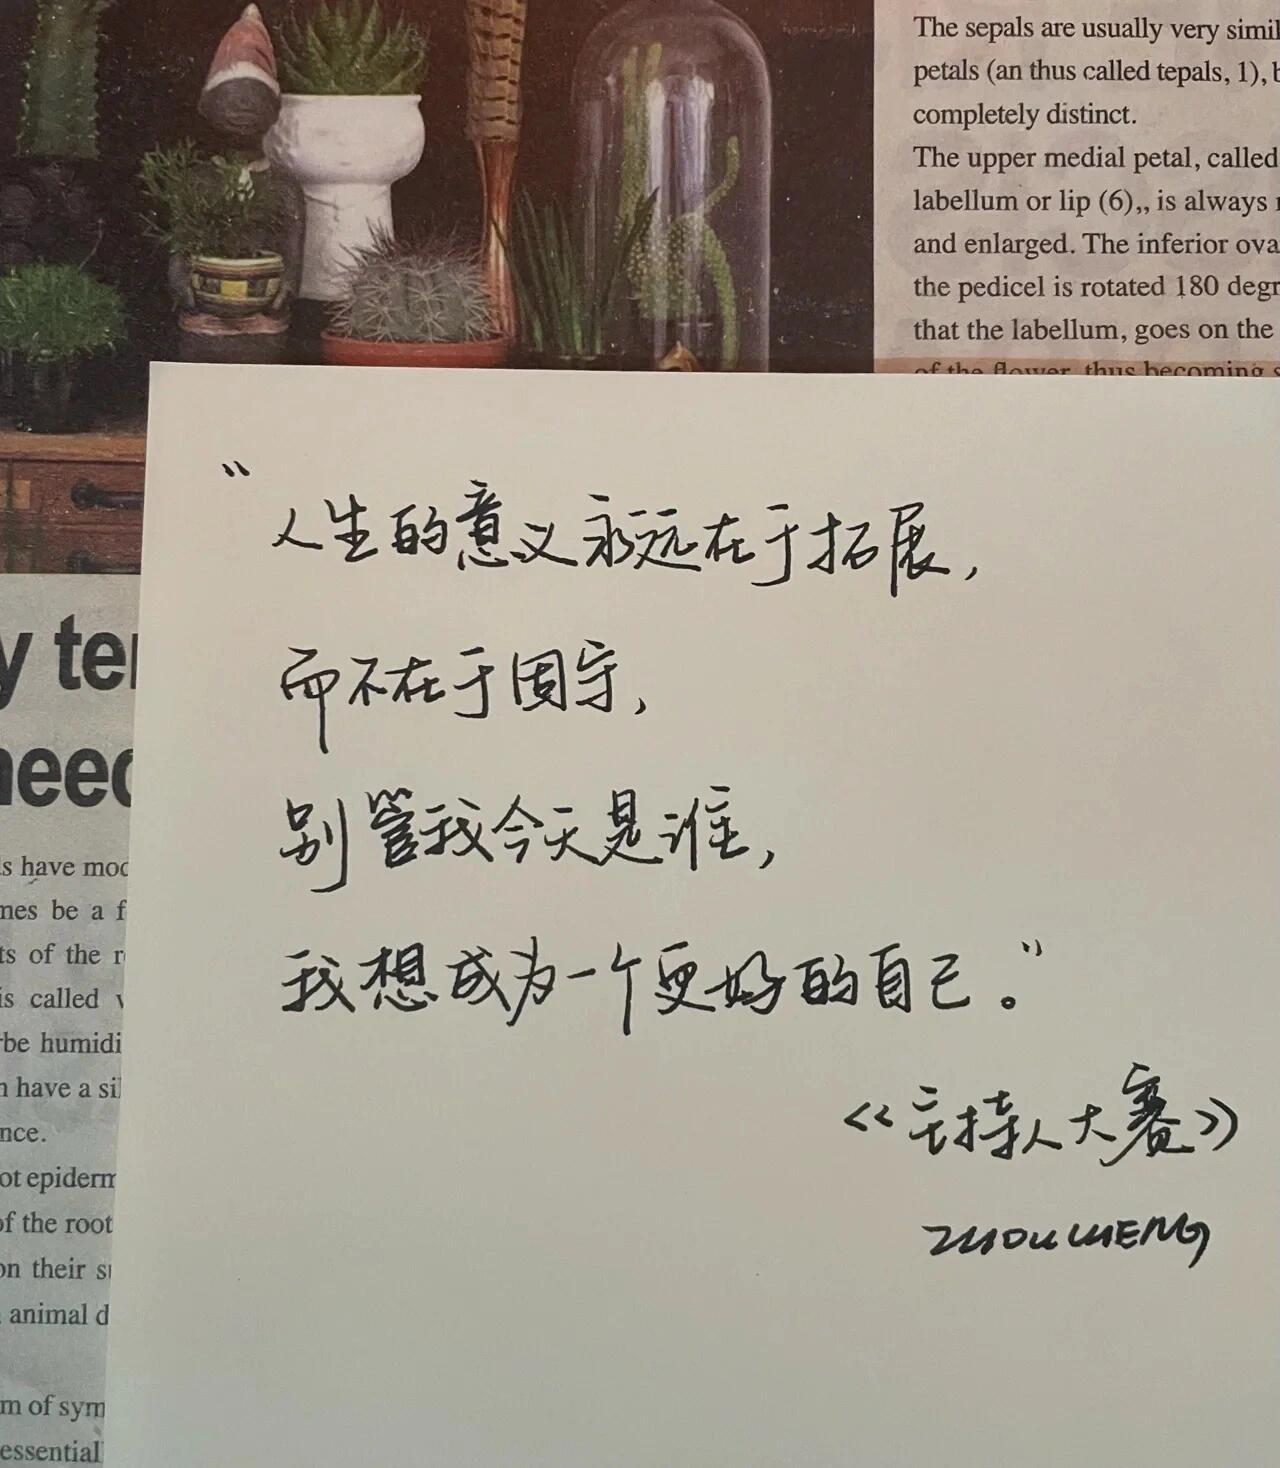 The sepals are usually very simil
petals (an thus called tepals, 1), b
completely distinct.
The upper medial petal, called
labellum or lip (6),, is always
and enlarged. The inferior ova
the pedicel is rotated 180 degr
that the labellum, goes on the
of the flower, thus becoming s
“人生的意义永远在于拓展,
而不在于固守,
别管我今天是谁,
我想成为一个更好的自己。”
《主持人大赛》
y te
need
s have mod
mes be a f
ts of the r
is called v
rbe humidi
n have a sil
nce.
ot epiderm
of the root
on their su
animal d
m of sym
essential